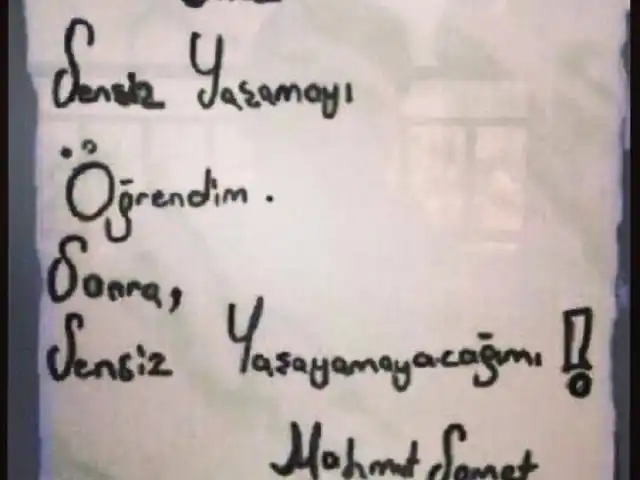 Sensiz Yaşamayı
Öğrendim.
Sonra,
Sensiz Yaşayamayacağımı !
Mahmut Samet